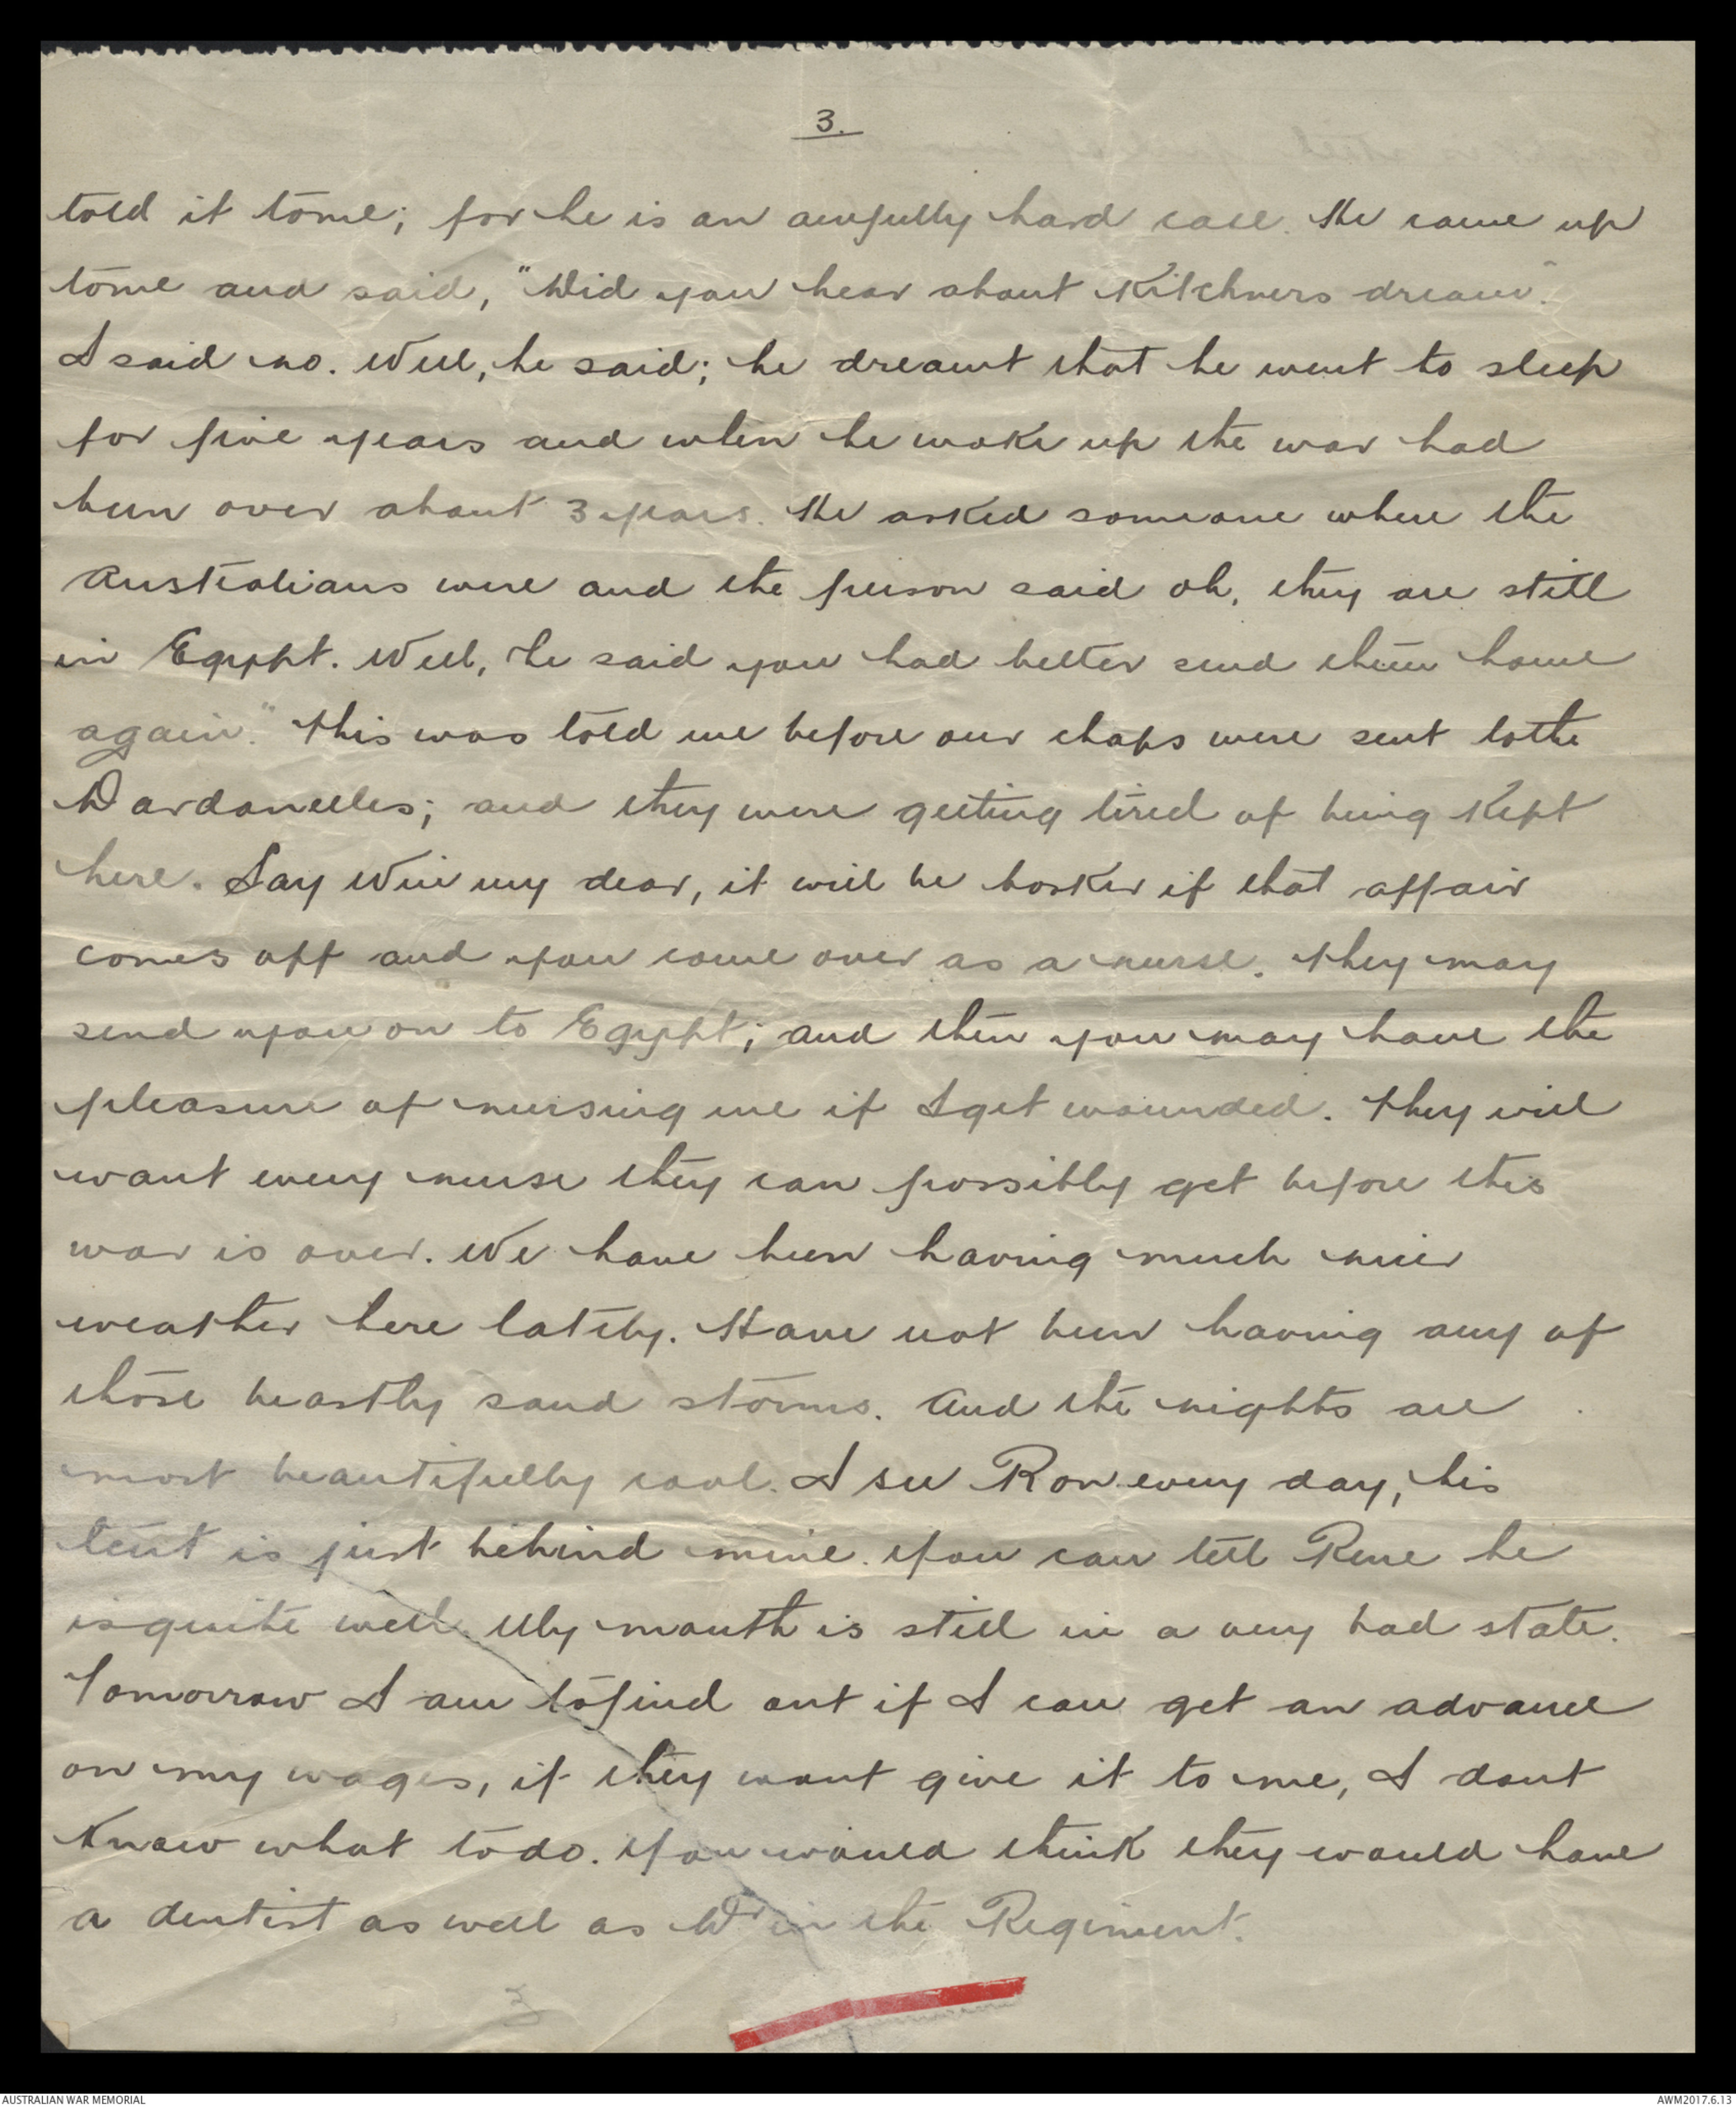 3.
told it to me; for he is an awfully hard case. He came up
to me and said, "Did you hear about Kitchners dream".
I said no. Well, he said; he dreamt that he went to sleep
for five years and when he woke up the war had
been over about 3 years. He asked someone where the
Australians were and the person said oh, they are still
in Egypt. Well, he said you had better send them home
again." This was told me before our chaps were sent to the
Dardanelles; and they were getting tired of being kept
here. Say Win my dear, it will be bosker if that affair
comes off and you come over as a nurse. They may
send you on to Egypt; and then you may have the
pleasure of nursing me if I get wounded. They will
want every nurse they can possibly get before this
war is over. We have been having much nicer
weather here lately. Have not been having any of
those beastly sand storms. And the nights are
most beautifully cool. I see Ron every day, his
tent is just behind mine. You can tell Rene he
is quite well. My mouth is still in a very bad state.
Tomorrow I am to find out if I can get an advance
on my wages, if they wont give it to me, I dont
know what to do. You would think they would have
a dentist as well as Dr in the Regiment.
3
AUSTRALIAN WAR MEMORIAL
AWM2017.6.13